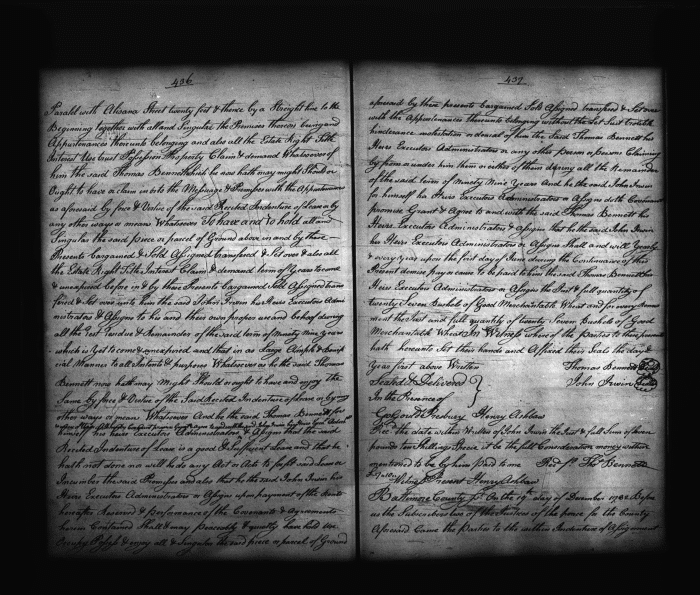 436
Parallel with Alisana Street twenty feet & thence by a Streight line to the
Beginning Together with all and Singular the Premises thereon being and
Appurtenances thereunto belonging and also all the Estate Right Title
Interest Use trust Possession Property Claim & demand Whatsoever of
him the said Thomas Bennett which he now hath may might Should or
Ought to have or claim in or to the Messuage & Premises with the Appurtenances
as aforesaid by force & Vertue of the said Recited Indenture of Lease or by
any other ways or means Whatsoever To have and to hold all and
Singular the said piece or parcel of Ground above in and by these
Presents bargained & Sold Assigned transfered & Set over & also all
the Estate Right Title Interest Claim & demand term of Years to come
& unexpired before in & by these Presents bargained Sold Assigned trans
fered & Set over unto him the said John Irwin his Heirs Executors Admi
nistrators & Assigns to his and their own proper use and behoof during
all the rest Residue & Remainder of the said term of Ninety Nine years
which is Yet to come & unexpired and that in as Large Ample & Benefi
cial Manner to all Intents & purposes Whatsoever as he the said Thomas
Bennett now hath may Might Should or ought to have and enjoy the
Same by force & Vertue of the Said Recited Indenture of Lease or by any
other ways or means Whatsoever And he the said Thomas Bennett for
himself his heirs Executors Administrators & Assigns that the said
Recited Indenture of Lease is a good & Sufficient Lease and that he
hath not done nor will he do any Act or Acts to forfeit said Lease or
Incumber the said Premises and also that he the said John Irwin his
Heirs Executors Administrators or Assigns upon payment of the Rents
hereafter Reserved & performance of the Covenants & Agreements
herein Contained Shall & may Peaceably & quietly have hold use
Occupy Possess & enjoy all & Singular the said piece or parcel of Ground
437
aforesaid by these presents bargained Sold Assigned transfered & Set over
with the Appurtenances thereunto belonging without the Let Suit Trouble
hinderance molestation or denial of him the Said Thomas Bennett his
Heirs Executors Administrators or any other Person or Persons Claiming
by from or under him them or either of them during all the Remainder
of the said term of Ninety Nine Years And he the said John Irwin
for himself his Heirs Executors Administrators or Assigns doth Covenant
promise Grant & Agree to and with the said Thomas Bennett his
Heirs Executors Administrators & Assigns that he the said John Irwin
his Heirs Executors Administrators or Assigns Shall and will Yearly
& every Year upon the first day of June during the Continuance of this
Present demise pay or cause to be paid to him the said Thomas Bennett his
Heirs Executors Administrators or Assigns the Just & full quantity of
twenty Seven Bushels of Good Merchantable Wheat and for every
ment the Just and full quantity of twenty Seven Bushels of Good
Merchantable Wheat In Witness whereof the Parties to these presents
hath hereunto Set their hands and Affixed their Seals the day &
Year first above Written Thomas Bennett Seal
Sealed & Delivered John Irwin Seal
In the Presence of
Geo Gould Presbury Henry Ashlaw
Recd the date within Written of John Irwin the Just & full Sum of
pounds ten Shillings Specie it be the full Consideration money within
mentioned to be by him Paid to me Recd pr Thos Bennett
Present Henry Ashlaw
Baltimore County ss. On the 19th day of December 1782 Before
us the Subscribers two of the Justices of the peace for the County
Aforesaid Came the Parties to the within Indenture of Assignment